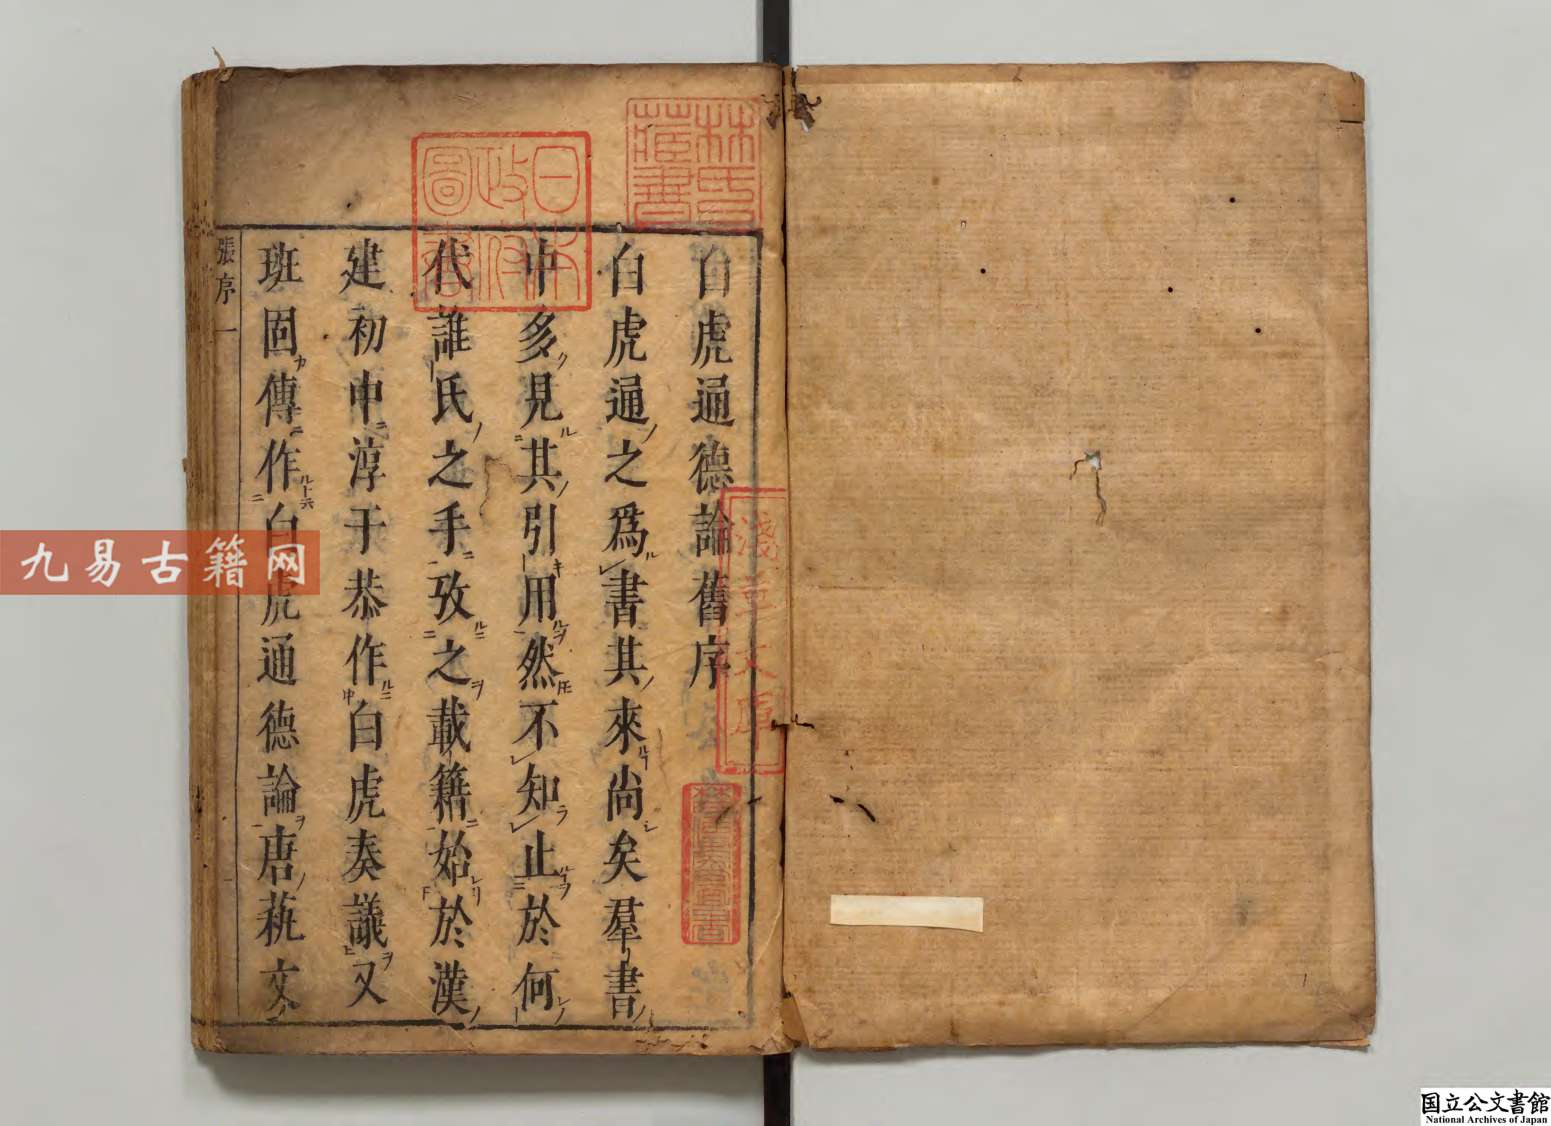 白虎通德論舊序
白虎通之爲書其來尚矣羣書
中多見其引用然不知止於何
代誰氏之手攷之載籍始於漢
建初中淳于恭作白虎奏議又
班固傳作白虎通德論唐蓺文
張序 一
林氏藏書
日本政府圖書
淺草文庫
九易古籍网
国立公文書館
National Archives of Japan